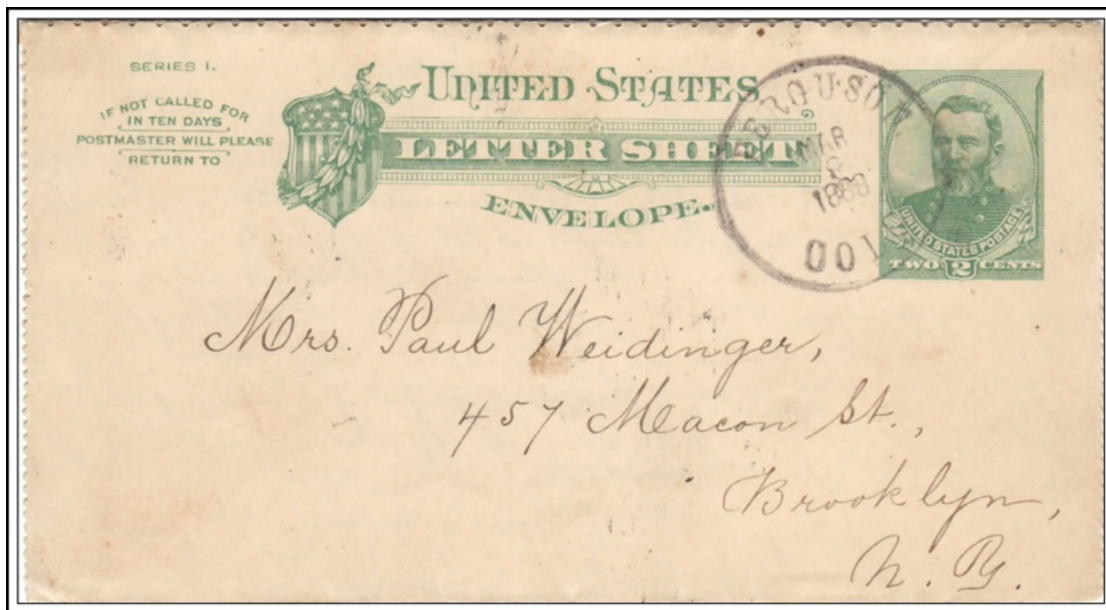 SERIES 1.
IF NOT CALLED FOR
IN TEN DAYS
POSTMASTER WILL PLEASE
RETURN TO
UNITED STATES
LETTER SHEET
ENVELOPE.
MAR
8
1888
UNITED STATES POSTAGE
TWO 2 CENTS
Mrs. Paul Weidinger,
457 Macon St.,
Brooklyn,
N. Y.